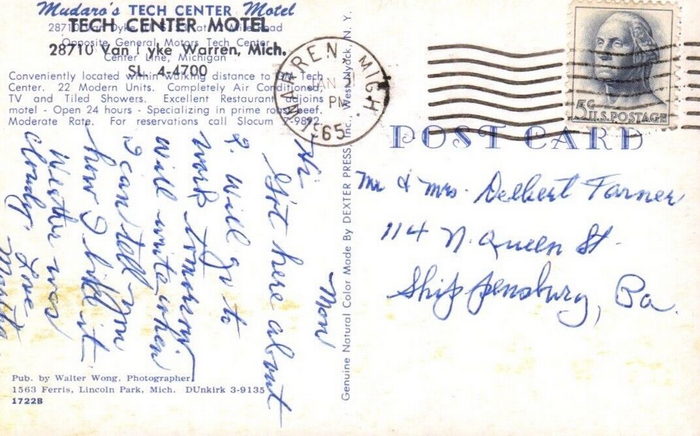 Mudaro's TECH CENTER Motel
TECH CENTER MOTEL
28710 Van Dyke Warren, Mich.
SL. 4-4700
Opposite General Motors Tech Center
Center Line, Michigan
Conveniently located within walking distance to the Tech
Center. 22 Modern Units. Completely Air Conditioned,
TV and Tiled Showers. Excellent Restaurant adjoins
motel - Open 24 hours - Specializing in prime roast beef.
Moderate Rate. For reservations call Slocum 7-9892.
WARREN, MICH
PM
1965
5¢
U.S. POSTAGE
POST CARD
Genuine Natural Color Made By DEXTER PRESS, Inc. West Nyack, N. Y.
Mon
Hi
Got here about
2. Will go to
work tomorrow
will write when
I can tell you
how I like it.
Weather was
cloudy. Love
Mr & Mrs. Delbert Farner
114 N. Queen St.
Shippensburg, Pa.
Pub. by Walter Wong, Photographer
1563 Ferris, Lincoln Park, Mich. DUnkirk 3-9135
1722B